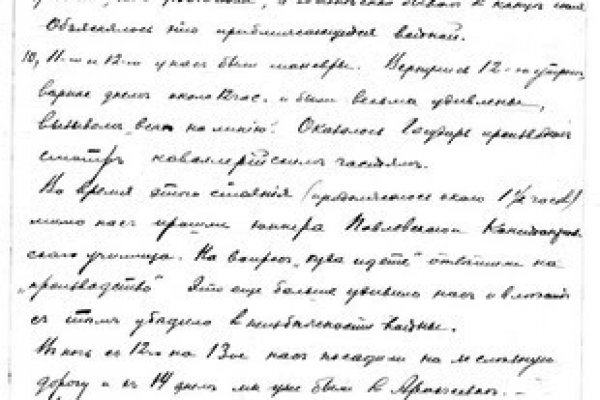 Объяснялось это приближающейся войной.
10, 11-го и 12-го у нас были маневры. Вернулись 12-го утром,
вернее днем около 12 час. и были весьма удивлены,
вызовом „всех на линию“. Оказалось Государь производил
смотр кавалерийским частям.
Во время этого стояния (продолжалось около 1½ часов)
мимо нас прошли юнкера Павловского
училища. На вопрос „куда идете“ отвечали на
„производство“ Это еще больше удивило нас и
с тем убедило в неизбежности войны.
В ночь с 12го на 13ое нас посадили на железную
дорогу и в 14 днем мы уже были в